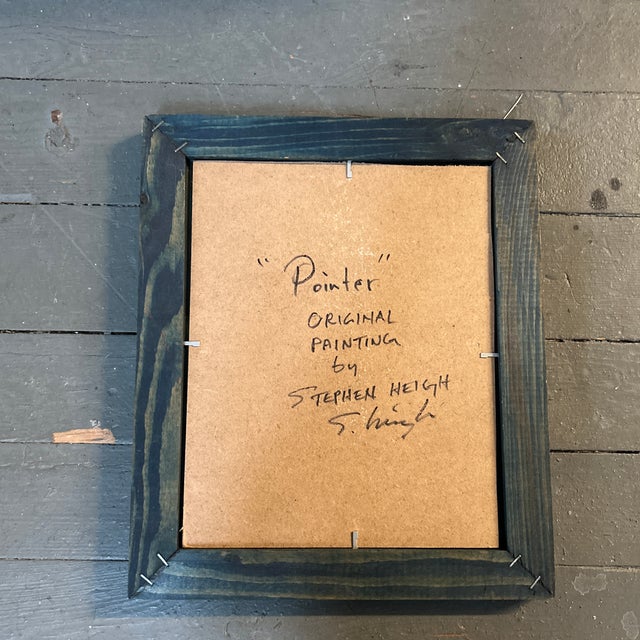 "Pointer"
ORIGINAL
PAINTING
by
STEPHEN HEIGH
S. Heigh